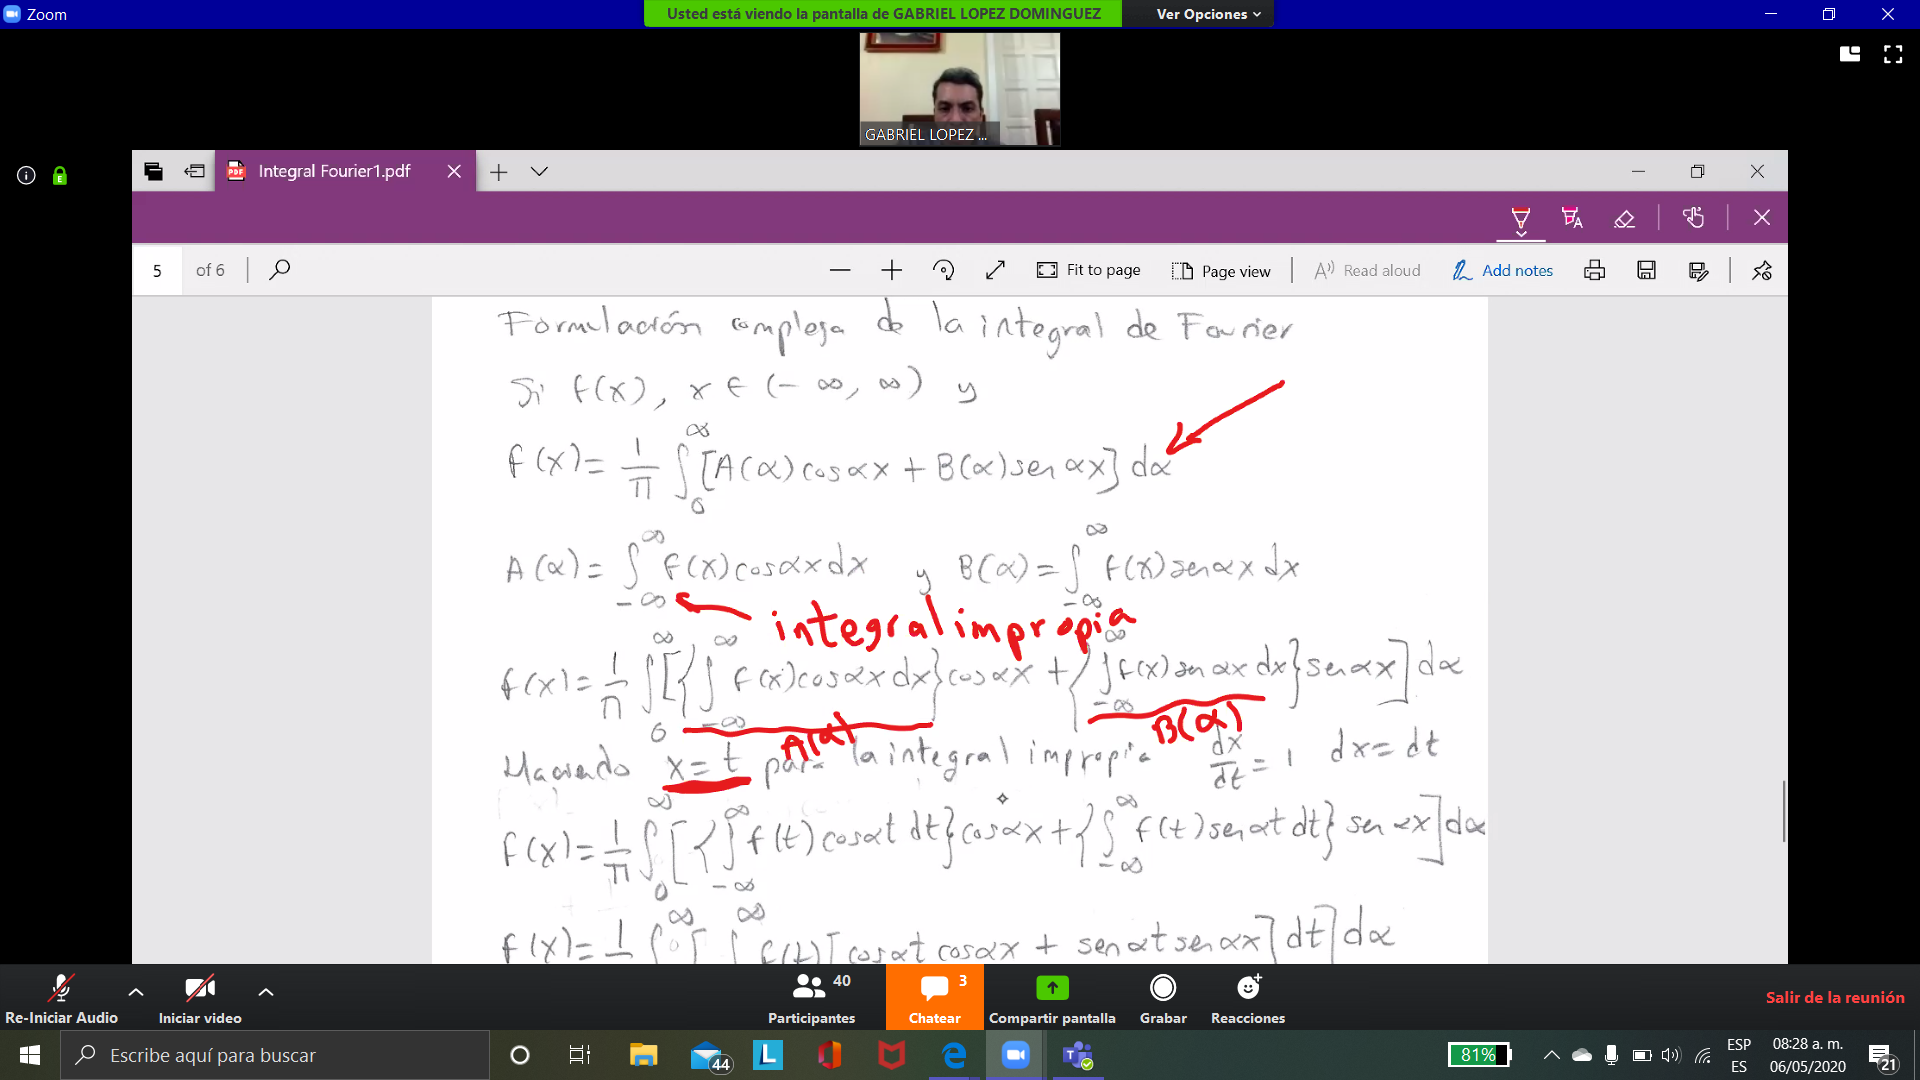 Zoom
Usted está viendo la pantalla de GABRIEL LOPEZ DOMINGUEZ
Ver Opciones
GABRIEL LOPEZ ...
Integral Fourier1.pdf
5 of 6
Fit to page
Page view
Read aloud
Add notes
Formulación compleja de la integral de Fourier
Si f(x), x ∈ (-∞, ∞) y
f(x) = 1/π ∫₀^∞ [A(α) cos αx + B(α) sen αx] dα
A(α) = ∫_{-∞}^∞ f(x) cos αx dx y B(α) = ∫_{-∞}^∞ f(x) sen αx dx
integral impropia
f(x) = 1/π ∫₀^∞ [{∫_{-∞}^∞ f(x) cos αx dx} cos αx + {∫_{-∞}^∞ f(x) sen αx dx} sen αx] dα
A(α) B(α)
x = t para la integral impropia dx/dt = 1 dx = dt
f(x) = 1/π ∫₀^∞ [{∫_{-∞}^∞ f(t) cos αt dt} cos αx + {∫_{-∞}^∞ f(t) sen αt dt} sen αx] dα
f(x) = 1 ∫₀^∞ [∫^∞ f(t) [cos αt cos αx + sen αt sen αx] dt] dα
Re-Iniciar Audio
Iniciar video
Participantes 40
Chatear 3
Compartir pantalla
Grabar
Reacciones
Salir de la reunión
Escribe aquí para buscar
44
L
81%
ESP
ES
08:28 a. m.
06/05/2020
21